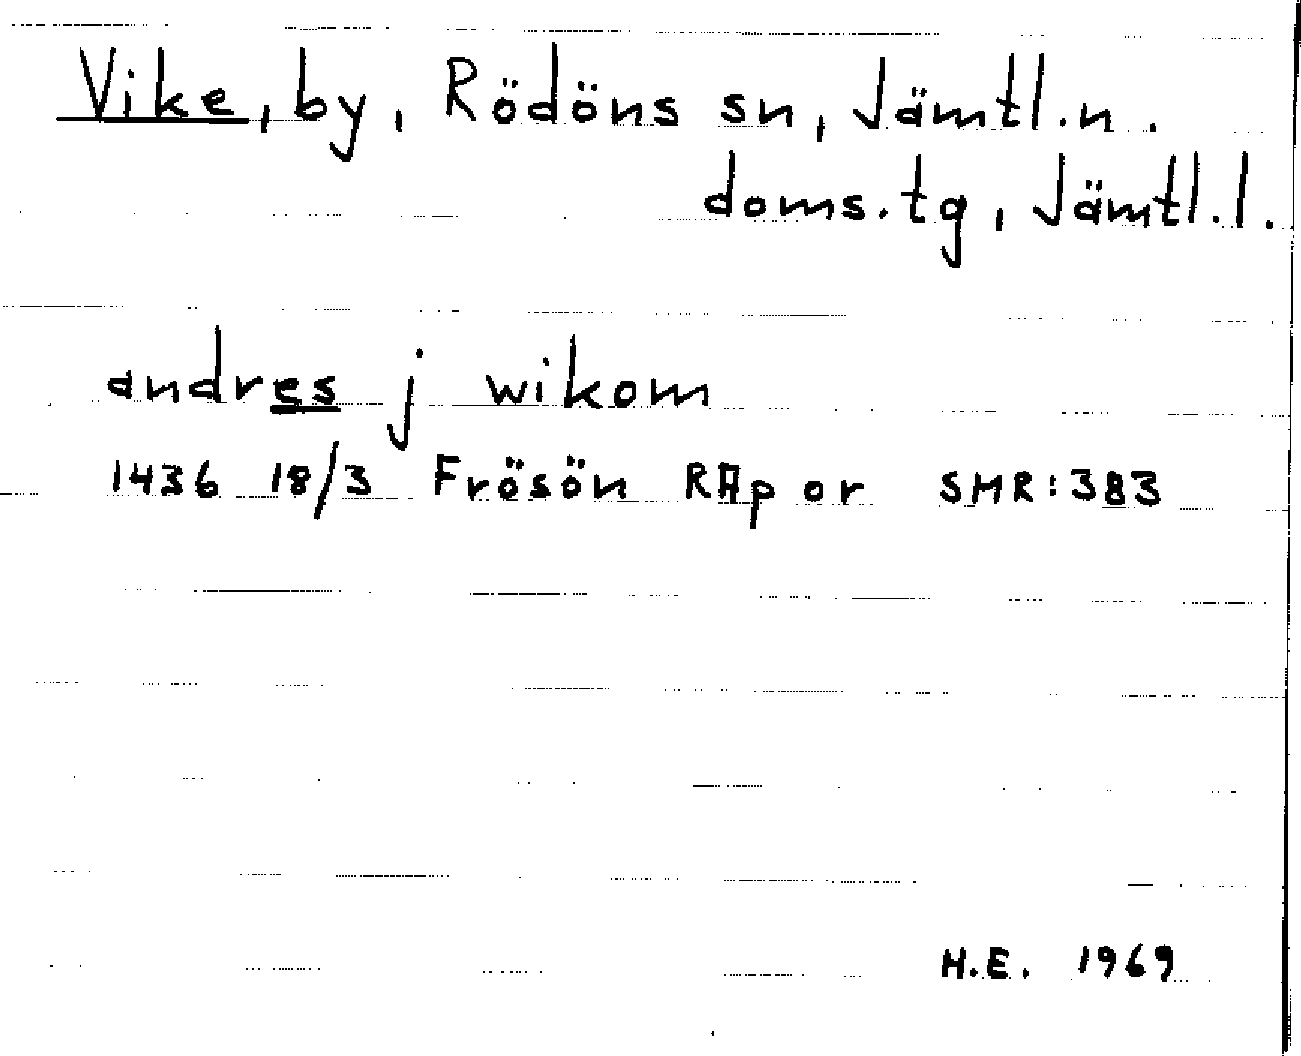 Vike, by, Rödöns sn, Jämtl.n.
doms.tg, Jämtl.l.
andres j wikom
1436 18/3 Frösön RAp or SMR:383
H.E. 1969